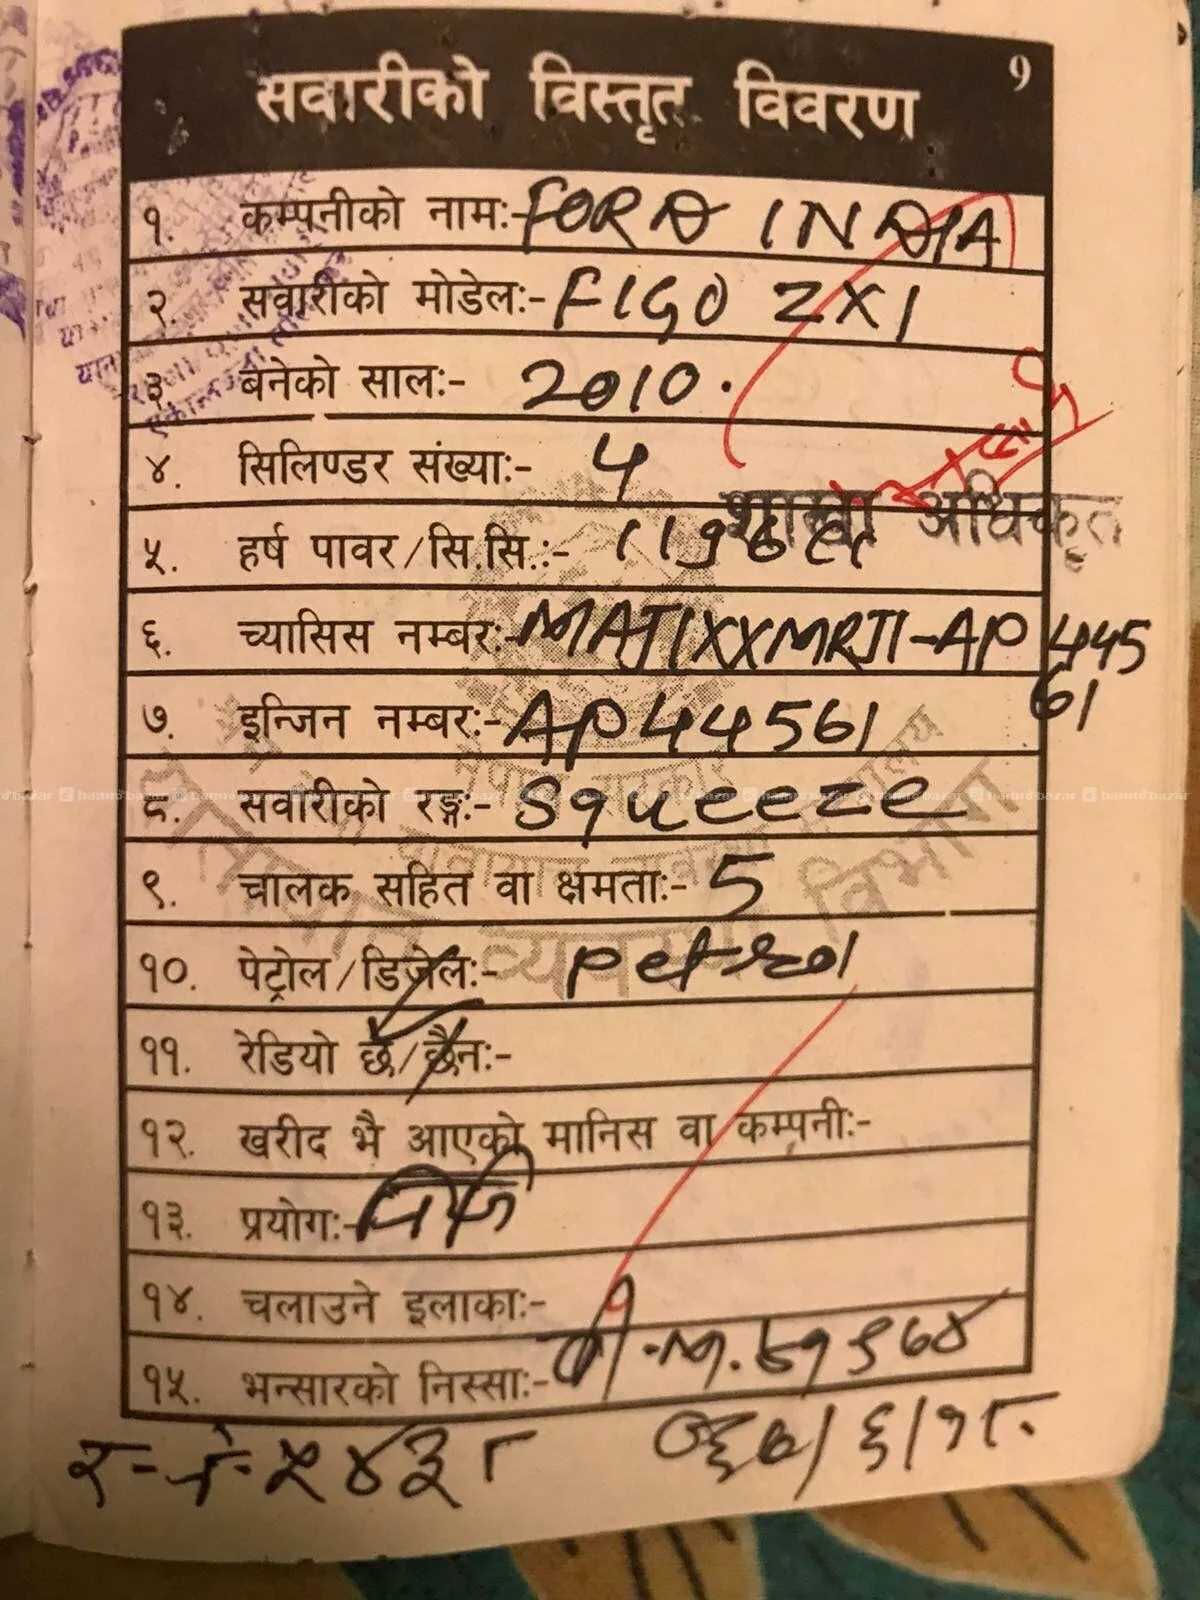 सवारीको विस्तृत विवरण
9
१. कम्पनीको नामः- FORD INDIA
२. सवारीको मोडेलः- FIGO ZXI
३. बनेको सालः- 2010.
४. सिलिण्डर संख्याः- 4
शाखा अधिकृत
५. हर्ष पावर/सि.सि.ः- 1196 CC
६. च्यासिस नम्बरः- MAJ1XXMRJ1-AP 445
61
७. इन्जिन नम्बरः- AP44561
८. सवारीको रङ्गः- squeeze
९. चालक सहित वा क्षमताः- 5
१०. पेट्रोल/डिजेलः- petrol
११. रेडियो छ/छैनः-
१२. खरीद भै आएको मानिस वा कम्पनीः-
१३. प्रयोगः- निजि
१४. चलाउने इलाकाः-
१५. भन्सारको निस्साः-
नेपाल सरकार
यातायात व्यवस्था विभाग
hamrobazar